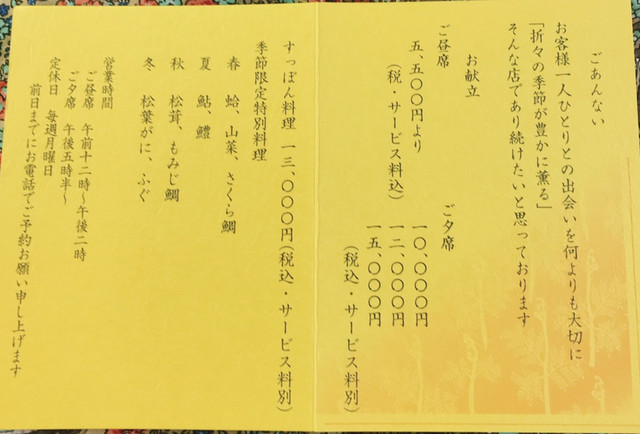 ごあんない
お客様一人ひとりとの出会いを何よりも大切に
「折々の季節が豊かに薫る」
そんな店であり続けたいと思っております
お献立
ご昼席
五、五〇〇円より
(税・サービス料込)
ご夕席
一〇、〇〇〇円
一二、〇〇〇円
一五、〇〇〇円
(税込・サービス料別)
すっぽん料理 一三、〇〇〇円(税込・サービス料別)
季節限定特別料理
春 蛤、山菜、さくら鯛
夏 鮎、鱧
秋 松茸、もみじ鯛
冬 松葉がに、ふぐ
営業時間
ご昼席 午前十二時〜午後二時
ご夕席 午後五時半〜
定休日 毎週月曜日
前日までにお電話でご予約お願い申し上げます